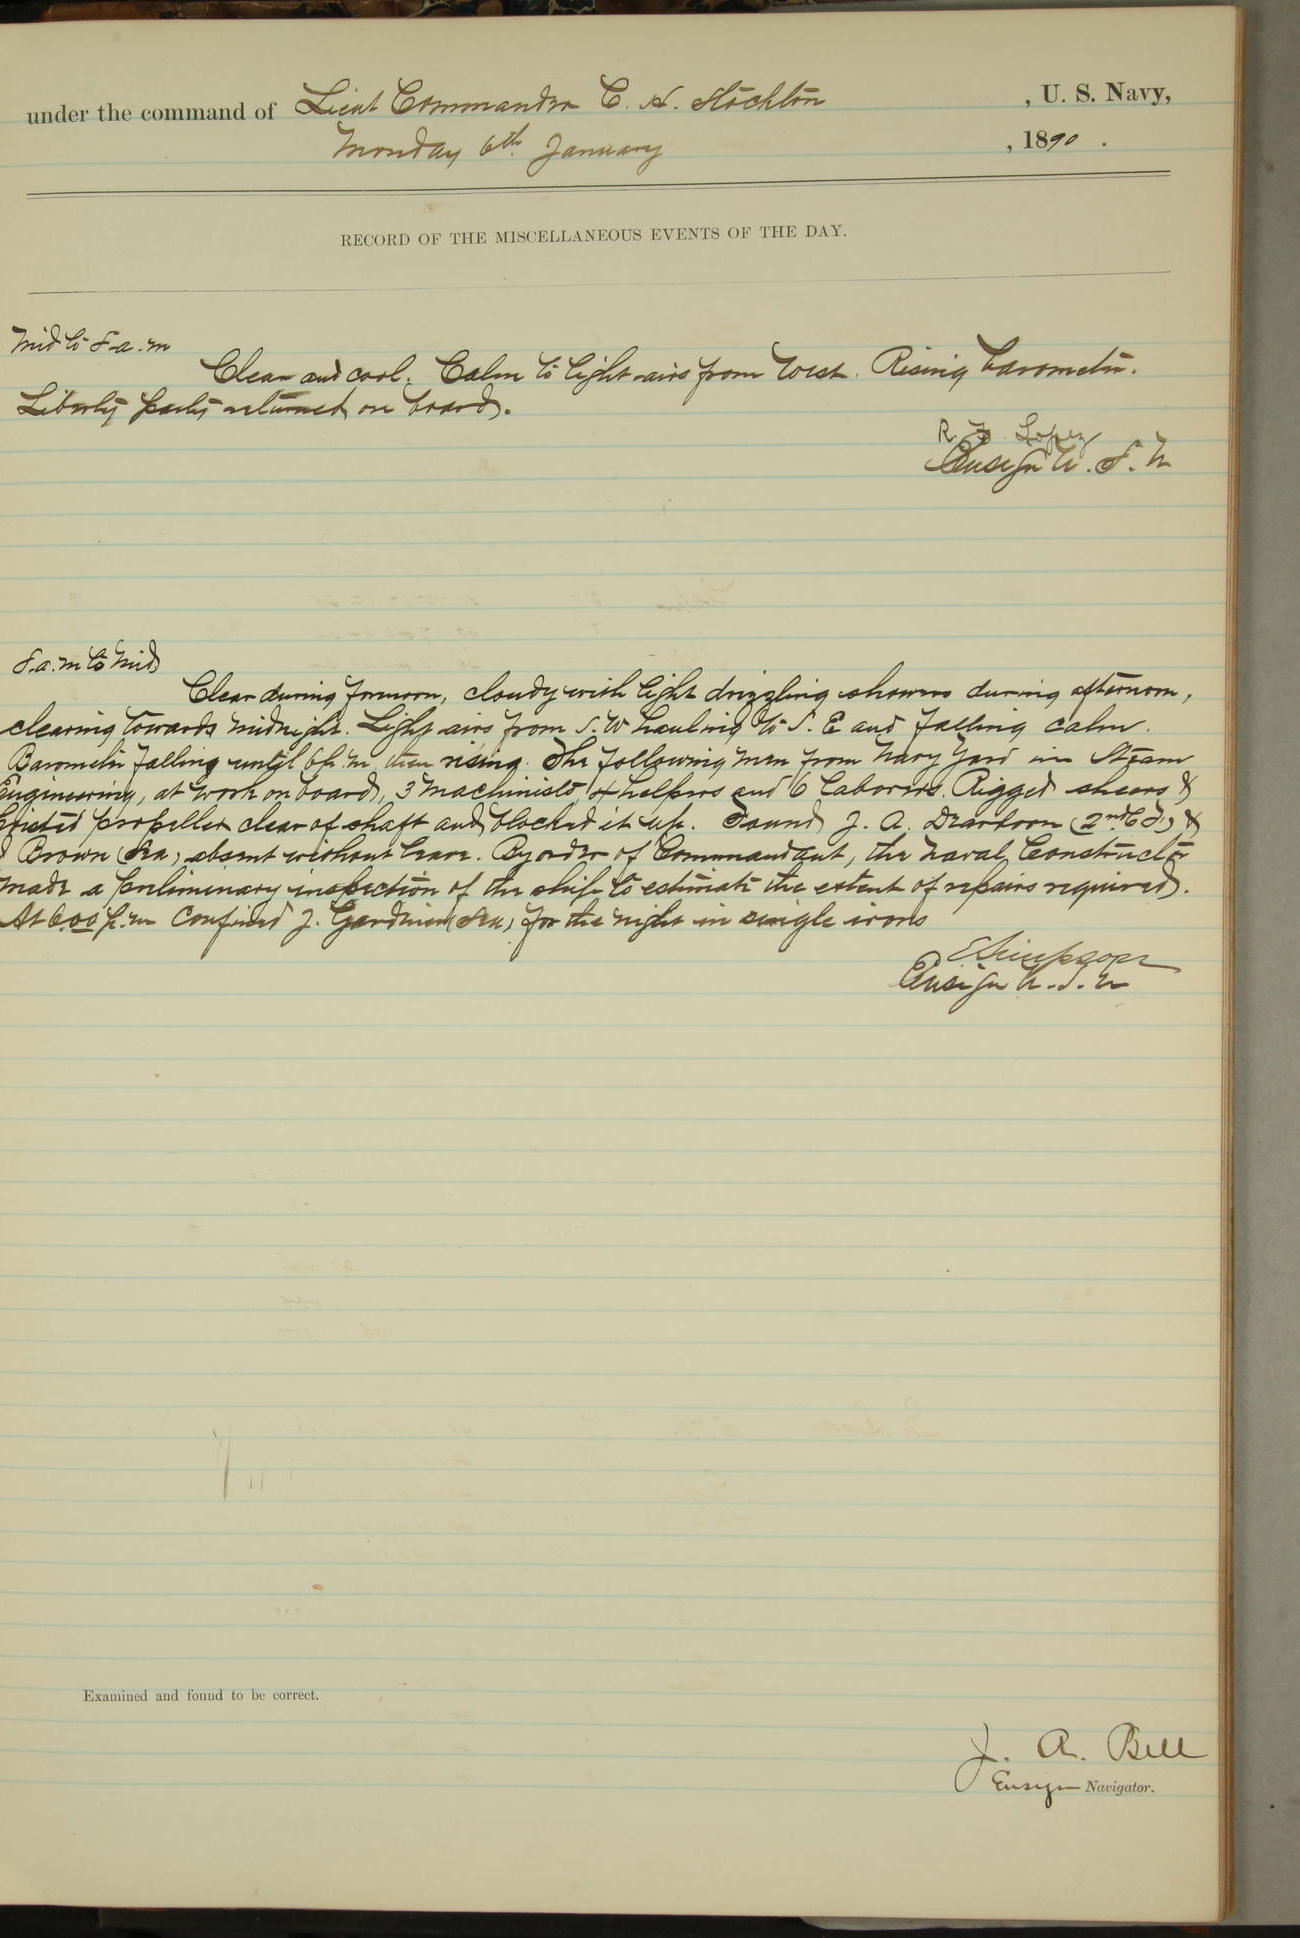 under the command of Lieut Commander C. H. Stockton , U. S. Navy,
Monday 6th January , 1890 .
RECORD OF THE MISCELLANEOUS EVENTS OF THE DAY.
Mid to 8 a.m
Clear and cool. Calm to light airs from West. Rising barometer.
Liberty party returned on board.
R. F. Lopez
Ensign U. S. N
8 a.m to Mid
Clear during forenoon, cloudy with light drizzling showers during afternoon,
clearing towards midnight. Light airs from S. W hauling to S. E and falling calm.
Barometer falling until 6 p.m, then rising. The following men from Navy Yard in Steam
Engineering, at work on board, 3 Machinists, 4 helpers and 6 Laborers. Rigged sheers &
hoisted propeller clear of shaft and blocked it up. Found J. A. Dearborn (2nd Cl) &
Brown (Sea) absent without leave. By order of Commandant, the Naval Constructor
made a preliminary inspection of the ship to estimate the extent of repairs required.
At 6.00 p.m confined J. Gardiner (Sea) for the night in single irons
E Simpson
Ensign U. S. N
Examined and found to be correct.
J. A. Bell
Ensign Navigator.